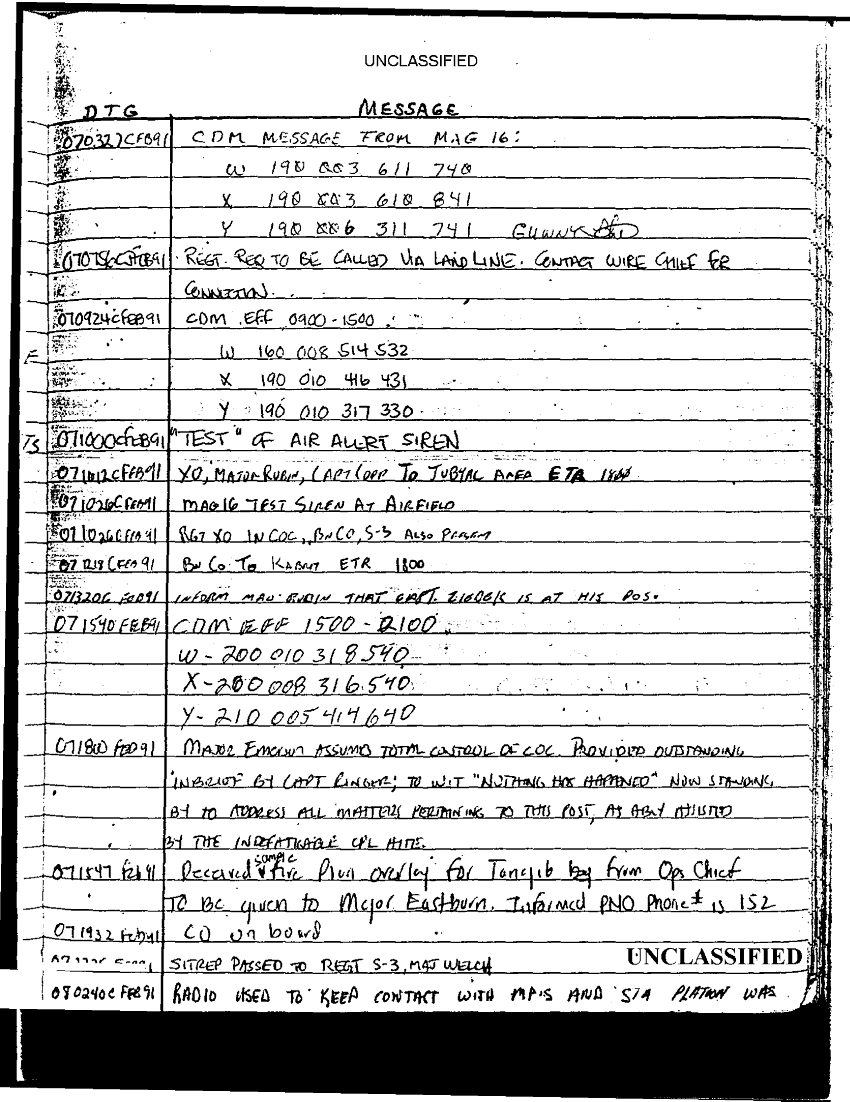 UNCLASSIFIED
DTG MESSAGE
070327CFEB91 CDM MESSAGE FROM MAG 16:
W 190 003 611 740
X 190 003 610 841
Y 190 006 311 741
070756CFEB91 REGT. REQ TO BE CALLED VIA LAND LINE. CONTACT WIRE CHIEF FOR
CONNECTION.
070924CFEB91 CDM EFF 0900-1500
W 160 008 514 532
X 190 010 416 431
Y 190 010 317 330
TS 071000CFEB91 "TEST" OF AIR ALERT SIREN
071012CFEB91 XO, MAJOR RUBIN, CAPT TO JUBYAL AREA ETR 1800
071026CFEB91 MAG 16 TEST SIREN AT AIRFIELD
071026CFEB91 RGT XO IN COC, BN CO, S-3 ALSO PRESENT
071218CFEB91 BN CO TO ETR 1800
071320C FEB91 INFORM MAJ RUBIN THAT CAPT. IS AT HIS POS.
071540 FEB91 CDM EFF 1500-2100
W-200 010 318 590
X-200 008 316.540
Y-210 005 414 640
071800 FEB91 MAJOR ASSUMED TOTAL CONTROL OF COC. PROVIDED OUTSTANDING
INBRIEF BY CAPT RINGER; TO WIT "NOTHING HAS HAPPENED" NOW STANDING
BY TO ADDRESS ALL MATTERS PERTAINING TO THIS POST, AS ABLY ASSISTED
BY THE INDEFATIGABLE CPL
071547 Feb 91 Received sample Fire Plan overlay for Tanajib from Ops Chief
TO BE given to Major Eastburn. Informed PNO Phone# is 152
071932 Feb 91 CO on board
SITREP PASSED TO REGT S-3, MAJ WELCH
UNCLASSIFIED
080240C FEB91 RADIO USED TO KEEP CONTACT WITH MP'S AND STA PLATOON WAS